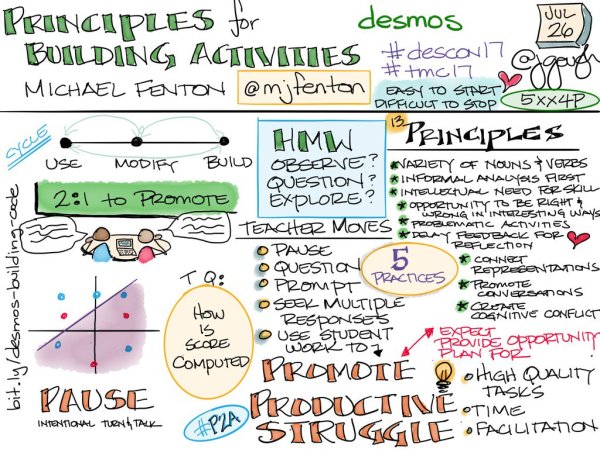 PRINCIPLES for
BUILDING ACTIVITIES
MICHAEL FENTON
@mjfenton
desmos
#descon17
#tmc17
EASY TO START
DIFFICULT TO STOP
JUL
26
5xx4P
CYCLE
USE
MODIFY
BUILD
2:1 to PROMOTE
bit.ly/desmos-building-code
T Q:
HOW
IS
SCORE
COMPUTED
PAUSE
INTENTIONAL TURN & TALK
HMW
OBSERVE?
QUESTION?
EXPLORE?
TEACHER MOVES
PAUSE
QUESTION
PROMPT
SEEK MULTIPLE
RESPONSES
USE STUDENT
WORK TO
5
PRACTICES
13
PRINCIPLES
VARIETY OF NOUNS & VERBS
INFORMAL ANALYSIS FIRST
INTELLECTUAL NEED FOR SKILL
OPPORTUNITY TO BE RIGHT &
WRONG IN INTERESTING WAYS
PROBLEMATIC ACTIVITIES
DELAY FEEDBACK FOR
REFLECTION
CONNECT
REPRESENTATIONS
PROMOTE
CONVERSATIONS
CREATE
COGNITIVE CONFLICT
#P2A
PROMOTE
PRODUCTIVE
STRUGGLE
EXPECT
PROVIDE OPPORTUNITY
PLAN FOR
HIGH QUALITY
TASKS
TIME
FACILITATION